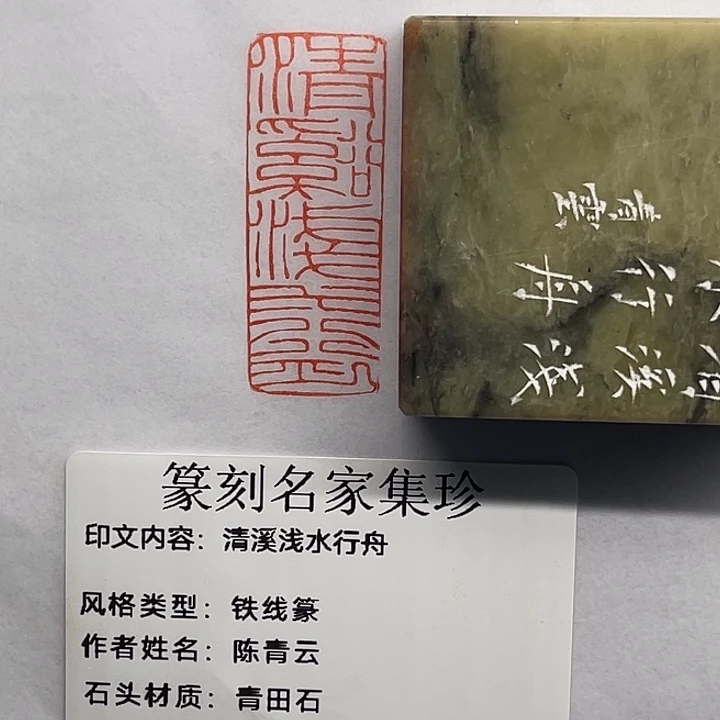 溪
行舟
青雲
篆刻名家集珍
印文内容：清溪浅水行舟
风格类型：铁线篆
作者姓名：陈青云
石头材质：青田石